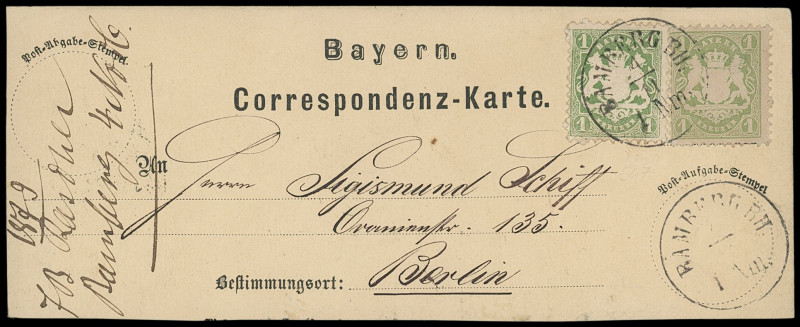 Post-Abgabe-Stempel.
Bayern.
Correspondenz-Karte.
1 1
1 1
BAMBERG BH.
1 Nm.
An
Herrn Sigismund Schiff
Oranienstr. 135.
Bestimmungsort: Berlin
Post-Aufgabe-Stempel.
BAMBERG BH.
1 Nm.
Bamberg